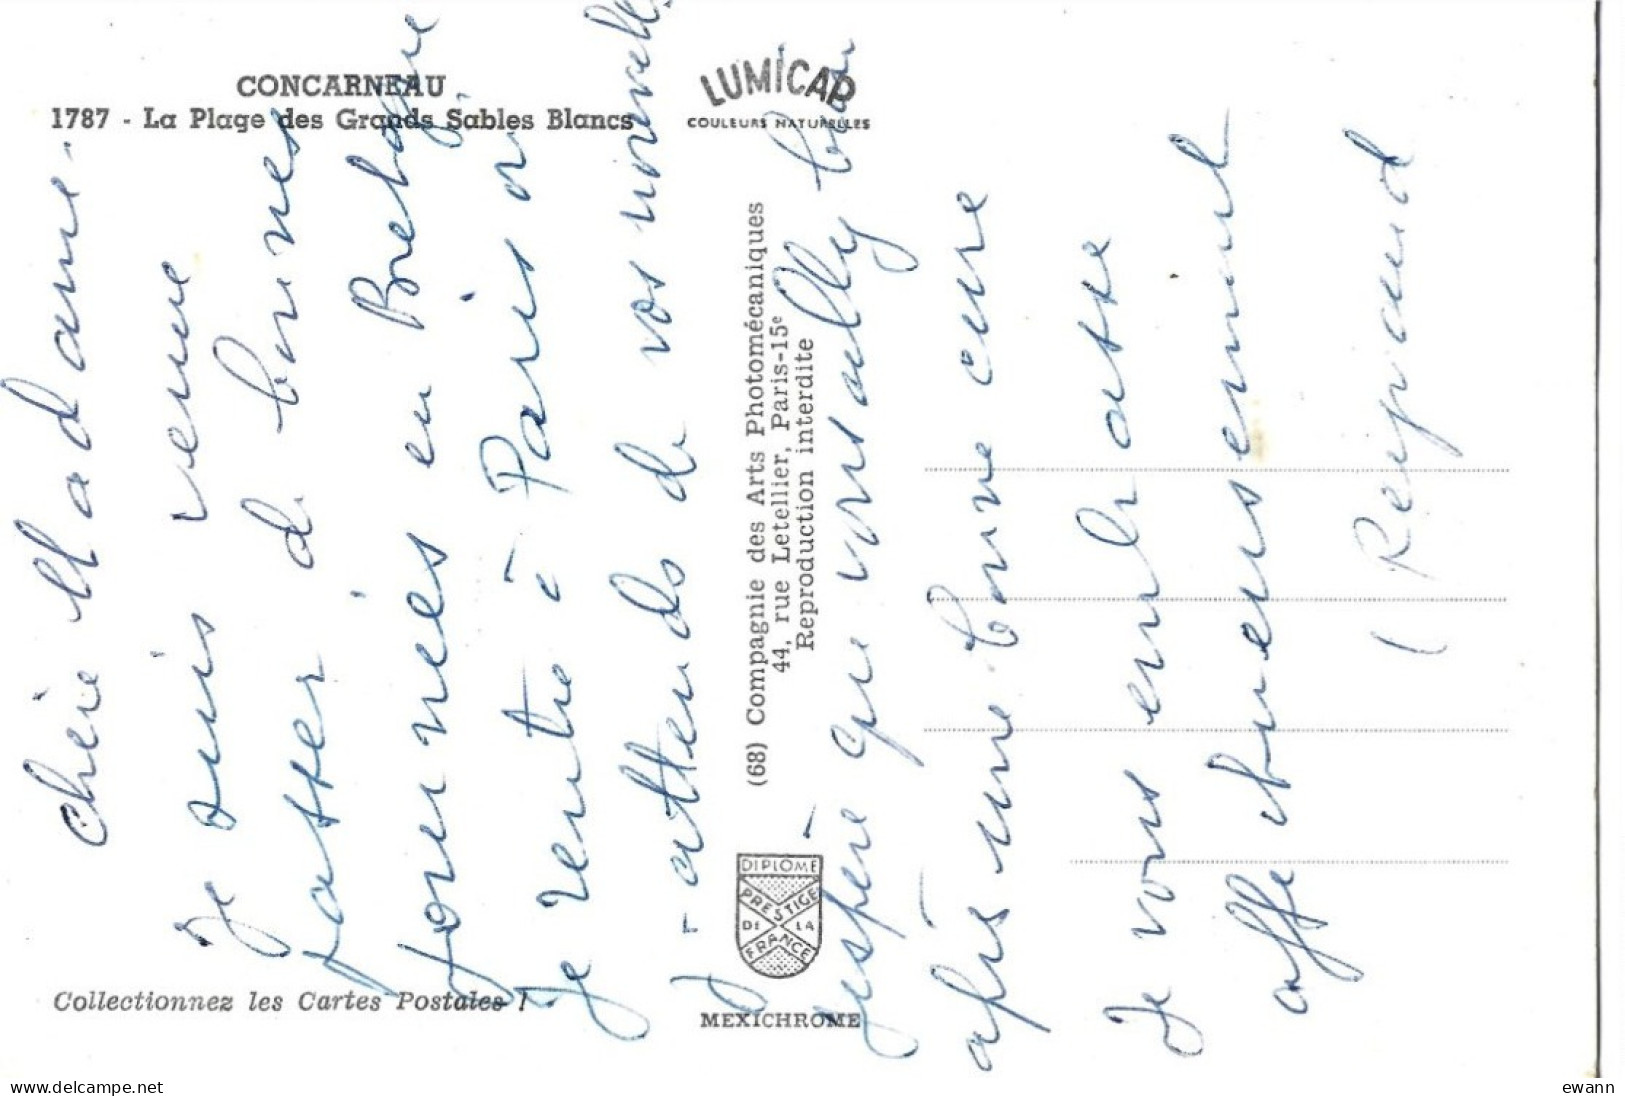 CONCARNEAU
1787 - La Plage des Grands Sables Blancs
LUMICAP
COULEURS NATURELLES
Chère Madame.
Je suis venue
passer de bonnes
journées en Bretagne
Je rentre à Paris
J'attends de vos nouvelles
J'espère que vous allez bien
après une bonne cure
Je vous embrasse
affectueusement
Reynaud
(68) Compagnie des Arts Photomécaniques
44, rue Letellier, Paris-15e
Reproduction interdite
DIPLOME
PRESTIGE
DE LA
FRANCE
MEXICHROME
Collectionnez les Cartes Postales !
www.delcampe.net
ewann